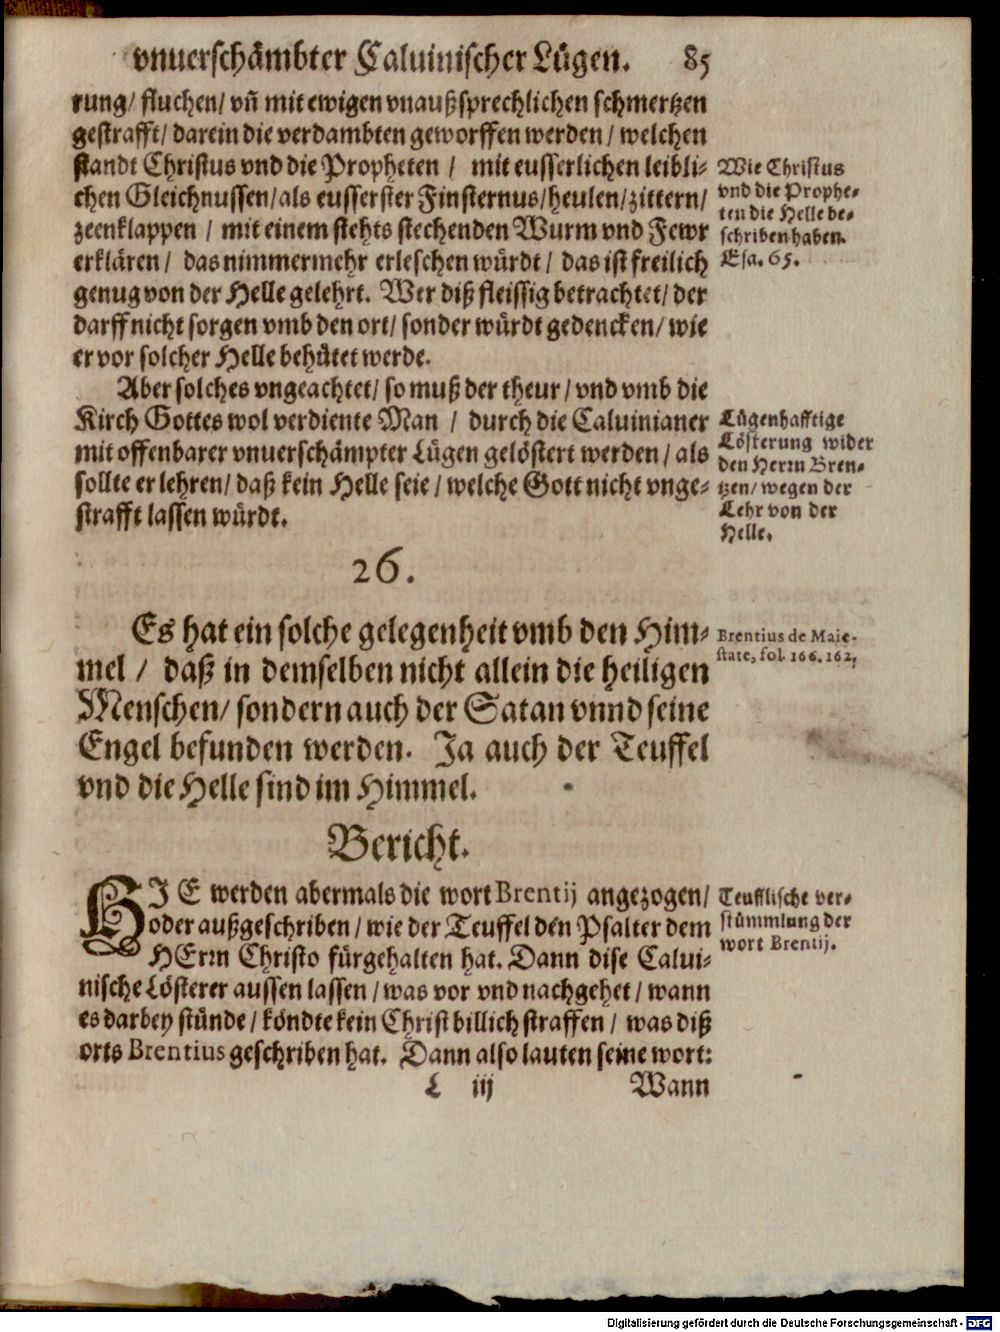 vnuerschämbter Caluinischer Lügen. 85
rung/ fluchen/ vñ mit ewigen vnaußsprechlichen schmertzen
gestrafft/ darein die verdambten geworffen werden/ welchen
standt Christus vnd die Propheten / mit eusserlichen leibli-
chen Gleichnussen/ als eusserster Finsternus/ heulen/ zittern/
zeenklappen / mit einem stehts stechenden Wurm vnd Fewr
erklären / das nimmermehr erleschen würdt / das ist freilich
genug von der Helle gelehrt. Wer diß fleissig betrachtet/ der
darff nicht sorgen vmb den ort/ sonder würdt gedencken/ wie
er vor solcher Helle behütet werde.
Wie Christus
vnd die Prophe-
ten die Helle be-
schriben haben.
Esa. 65.
Aber solches vngeachtet/ so muß der theur / vnd vmb die
Kirch Gottes wol verdiente Man / durch die Caluinianer
mit offenbarer vnuerschämpter Lügen gelöstert werden/ als
sollte er lehren/ daß kein Helle seie / welche Gott nicht vnge-
strafft lassen würdt.
Lügenhafftige
Lösterung wider
den Herrn Bren-
tzen/ wegen der
Lehr von der
Helle.
26.
Es hat ein solche gelegenheit vmb den Him-
mel / daß in demselben nicht allein die heiligen
Menschen/ sondern auch der Satan vnnd seine
Engel befunden werden. Ja auch der Teuffel
vnd die Helle sind im Himmel.
Brentius de Maie-
state, fol. 166. 162,
Bericht.
HJE werden abermals die wort Brentij angezogen/
oder außgeschriben / wie der Teuffel den Psalter dem
HErrn Christo fürgehalten hat. Dann dise Calui-
nische Lösterer aussen lassen / was vor vnd nachgehet / wann
es darbey stünde / köndte kein Christ billich straffen / was diß
orts Brentius geschriben hat. Dann also lauten seine wort:
Teufflische ver-
stümmlung der
wort Brentij.
L iij Wann
Digitalisierung gefördert durch die Deutsche Forschungsgemeinschaft - DFG